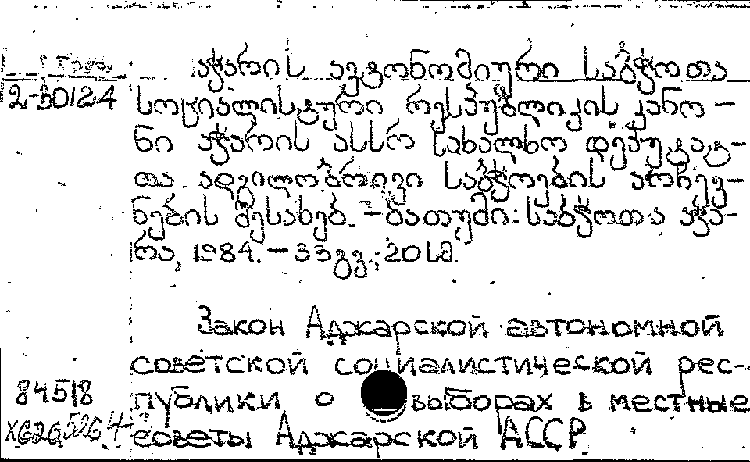 აჭარის ავტონომიური საბჭოთა
2-50124 სოციალისტური რესპუბლიკის კანო-
ნი აჭარის ასსრ სახალხო დეპუტატ-
თა ადგილობრივი საბჭოების არჩევ-
ნების შესახებ. – ბათუმი: საბჭოთა აჭა-
რა, 1984. – 33 გვ.; 20 სმ.
Закон Аджарской автономной
советской социалистической рес-
84518 публики о выборах в местные
советы Аджарской АССР